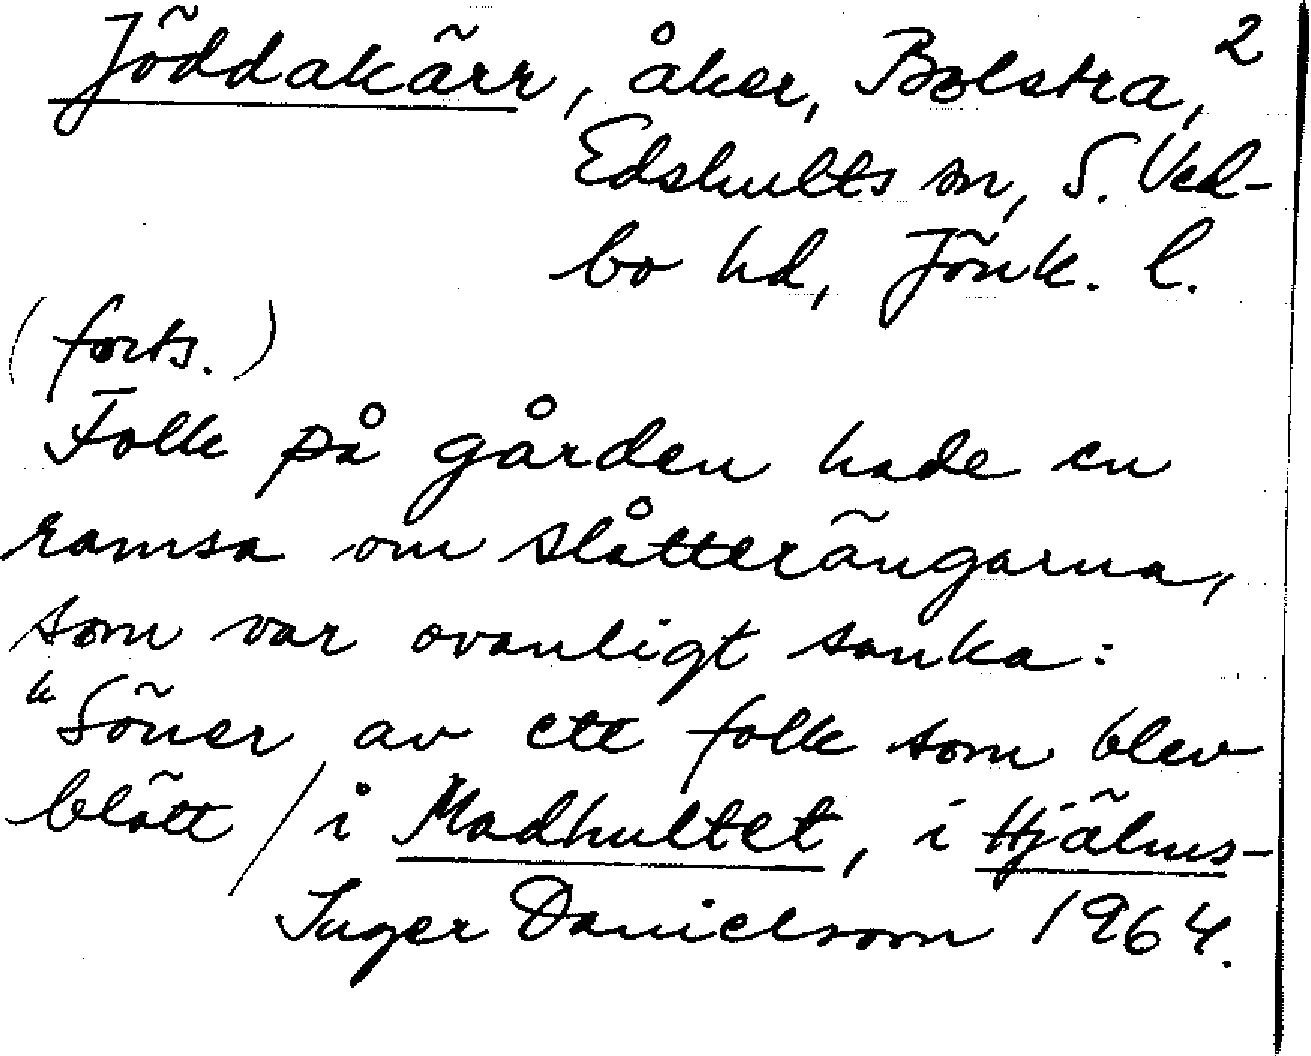 Jöddakärr, åker, Bolstra, 2
Edshults sn, S. Ved-
bo hd, Jönk. l.
(forts.)
Folk på gården hade en
ramsa om slåtterängarna,
som var ovanligt sanka:
"Söner av ett folk som blev
blött / i Madhultet, i Hjälms-
Inger Danielsson 1964.